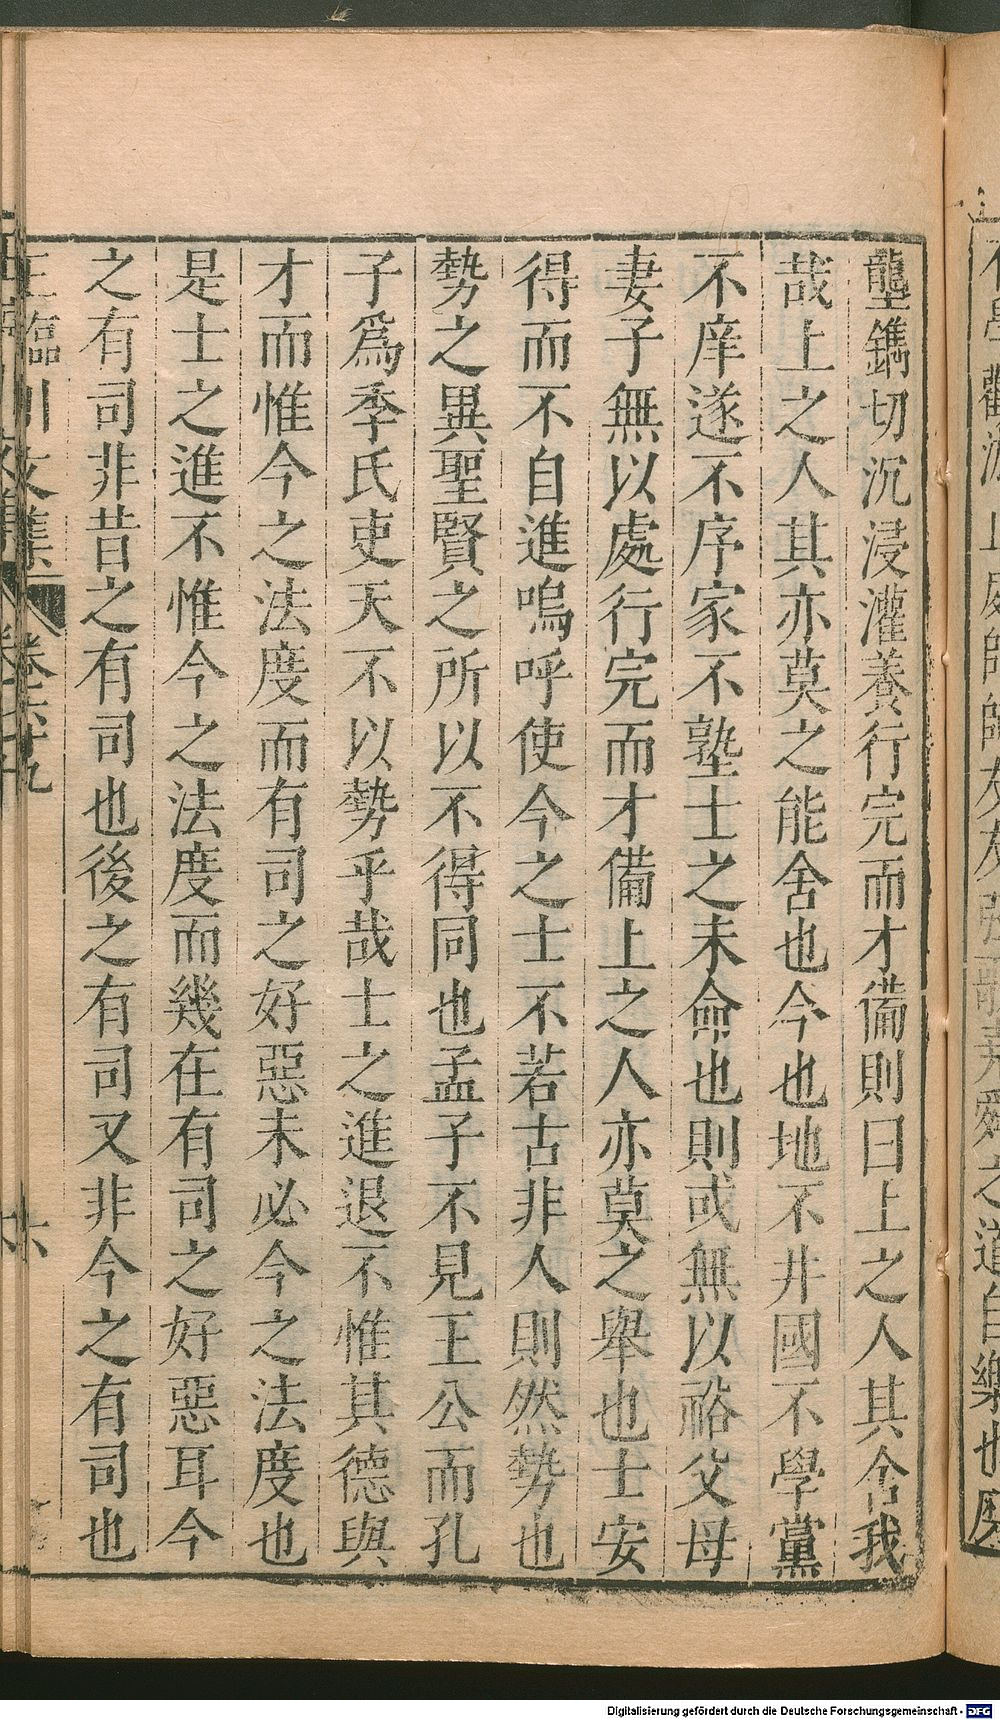 壟鐫切沉浸灌養行完而才備則曰上之人其舍我
哉上之人其亦莫之能舍也今也地不井國不學黨
不庠遂不序家不塾士之未命也則或無以裕父母
妻子無以處行完而才備上之人亦莫之舉也士安
得而不自進嗚呼使今之士不若古非人則然勢也
勢之異聖賢之所以不得同也孟子不見王公而孔
子爲季氏吏夭不以勢乎哉士之進退不惟其德與
才而惟今之法度而有司之好惡未必今之法度也
是士之進不惟今之法度而幾在有司之好惡耳今
之有司非昔之有司也後之有司又非今之有司也
王臨川文集
卷六十九
六
Digitalisierung gefördert durch die Deutsche Forschungsgemeinschaft - DFG